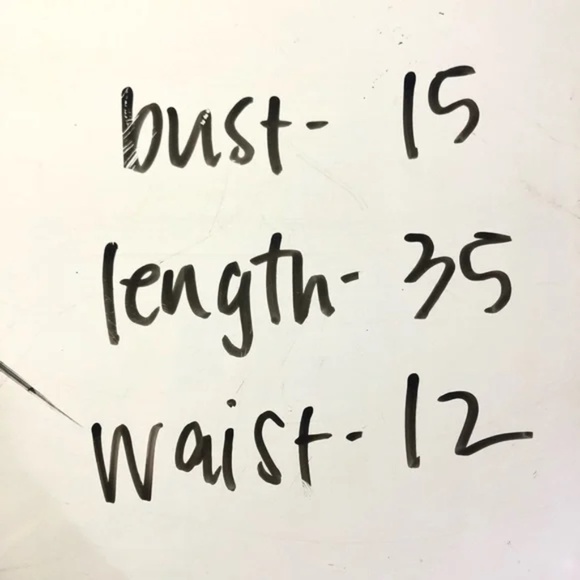 bust- 15
length- 35
waist- 12